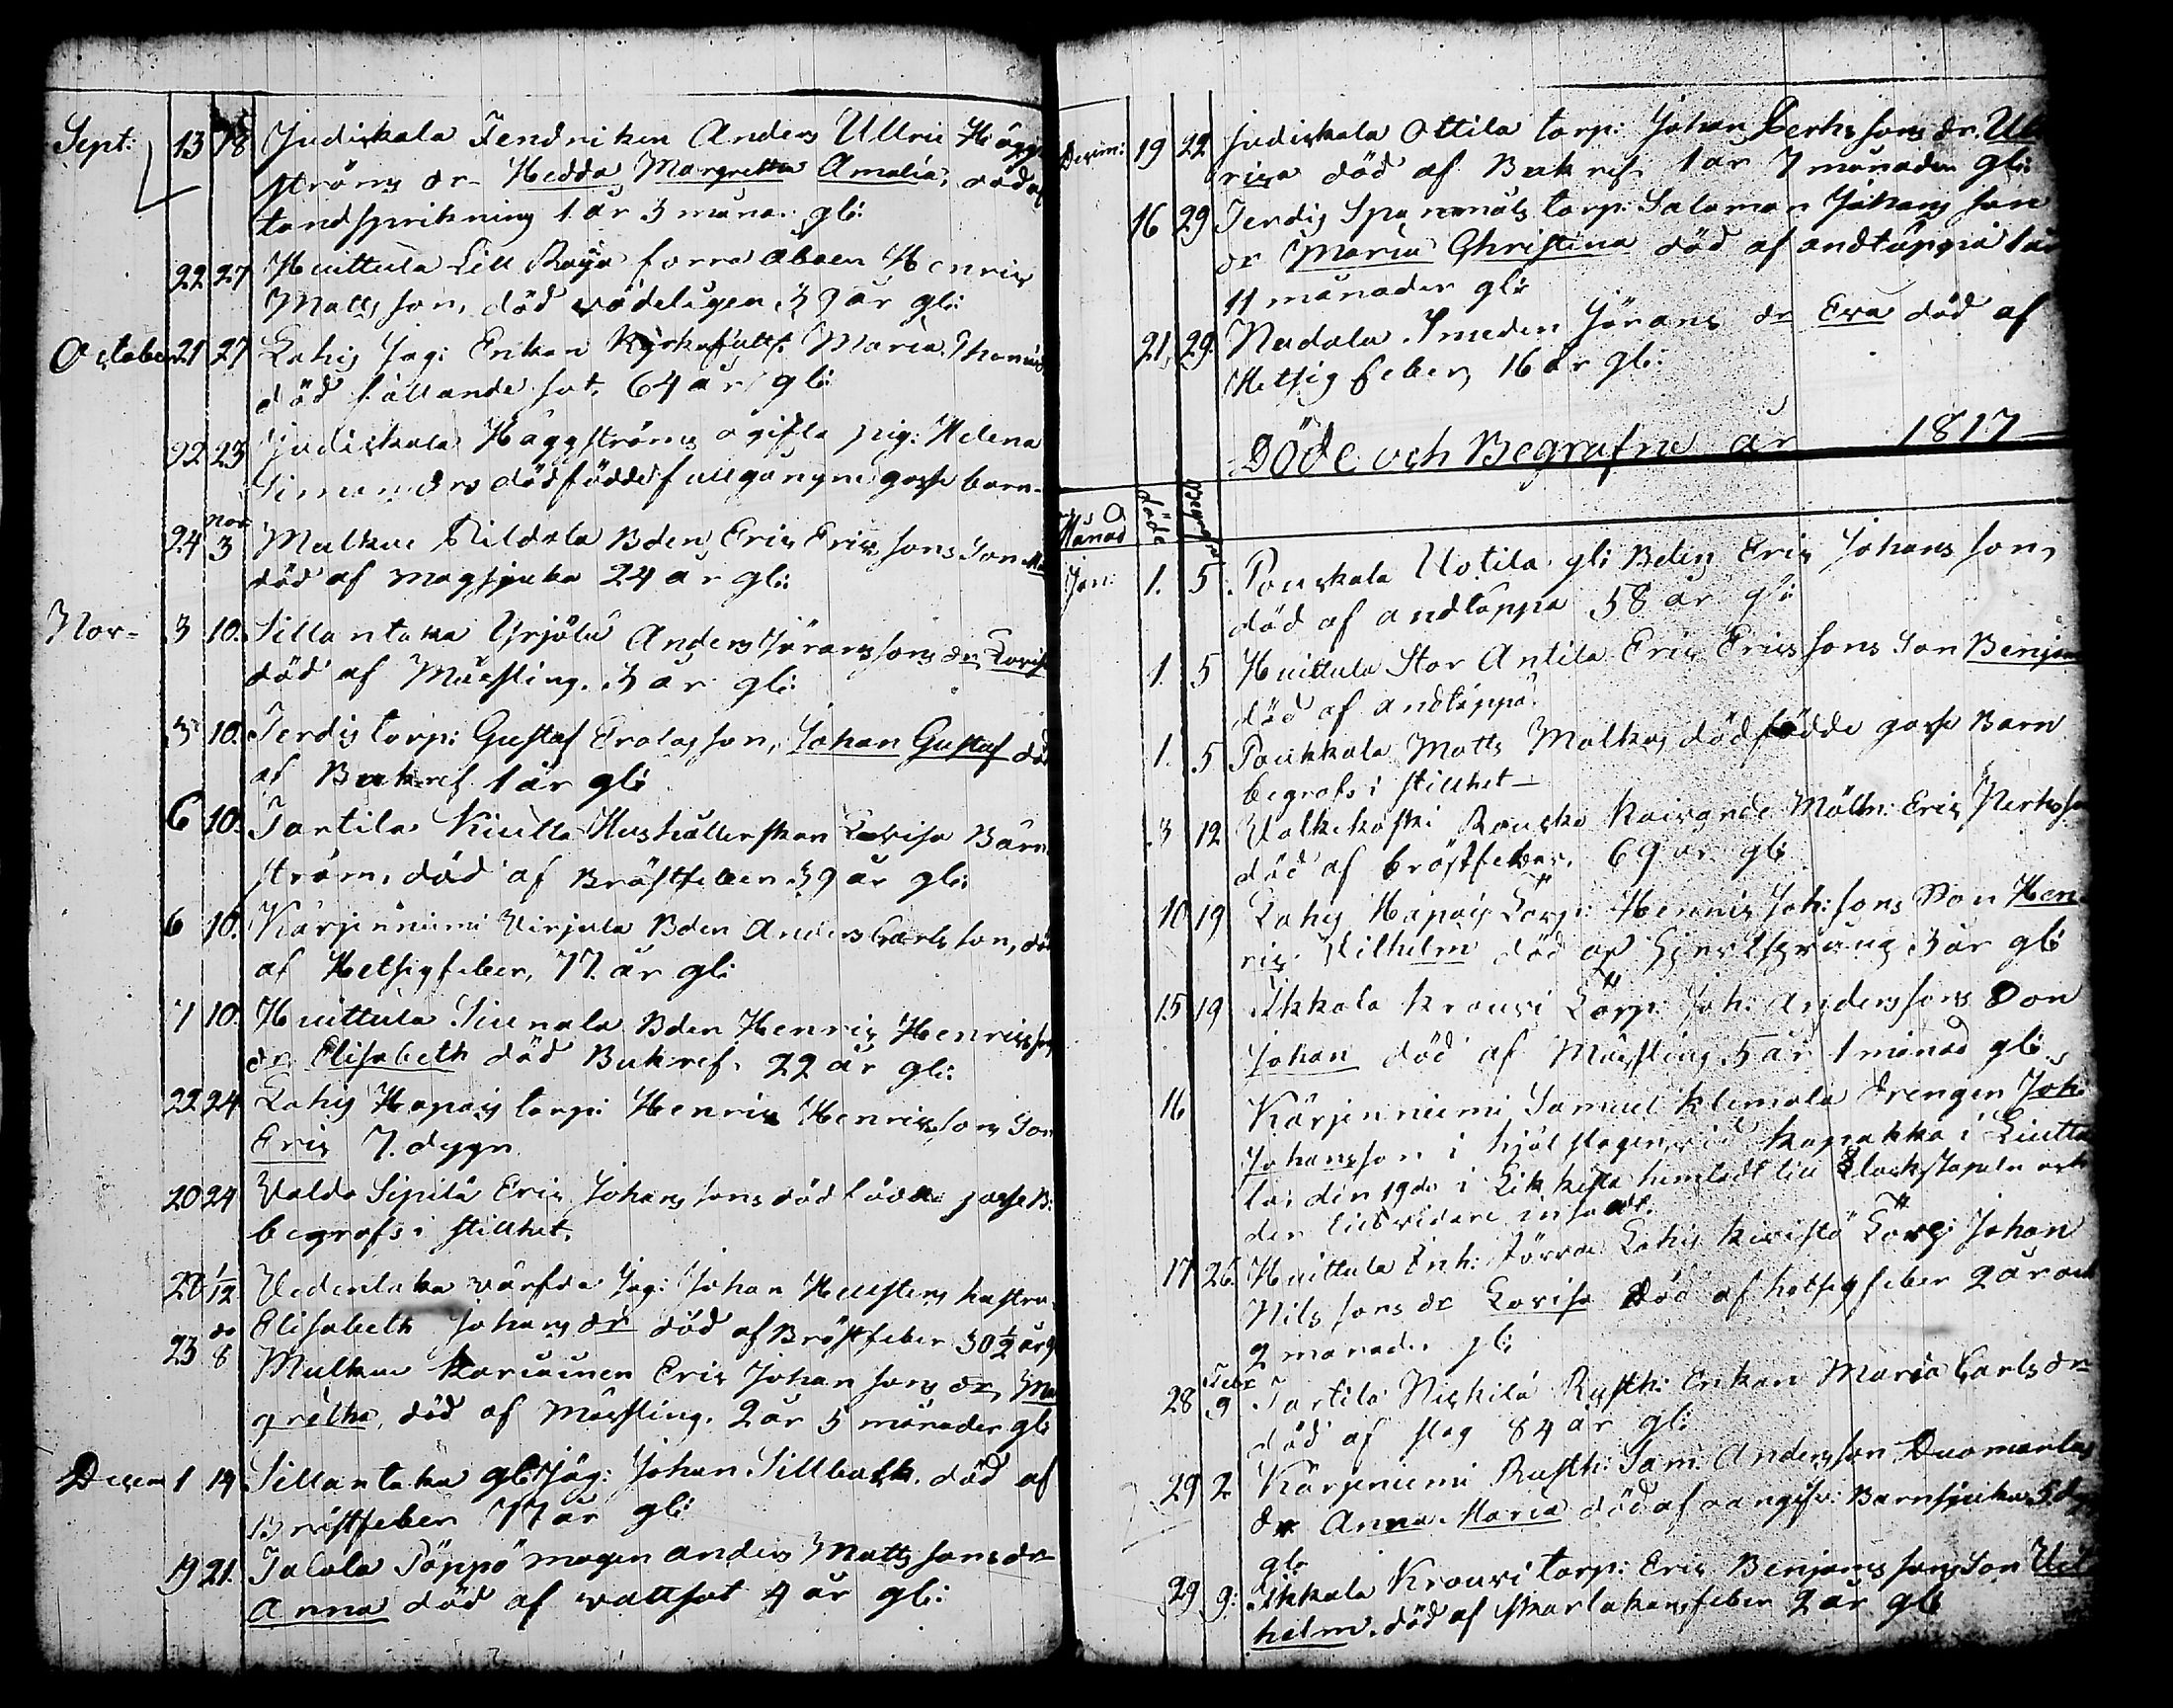 Sept. 13 18 Judikkala Fendriken Anders Ullric Hägg
ströms dr Hedda Margretha Amalia, död af
tandsprikning 1 år 3 måna. gl:
22 27 Huittula Lill Raya forra åboen Henric
Matts son, död vådeligen 39 år gl:
October 21 27 Lahis Jag: Enkan Maria Thomæ
död fallande sot. 64 år gl:
22 23 Judikkala Häggströms ogifta pig: Helena
Simons drs dödfödde fullgångne gosse barn
24 nov 3 Mälkiäe Bden Eric Erics sons son
död af magsjuka 24 år gl:
Nov- 3 10. Sillantaka Yrjölä Anders Jörans sons dr Lovisa
död af Mässling. 3 år gl:
3 10. Terdis torp: Gustaf Erolas son, Johan Gustaf död
af Bukref 1 år gl:
6 10. Tartila Kiutta Hushållerskan Lovisa Bärn
ström, död af Bröstfeber 39 år gl:
6 10. Kärjenniemi Virjula Bden Anders Carls son, död
af Hetsigfeber, 77 år gl:
7 10. Huittula Siunala Bden Henric Henrics sons
dr Elisabeth död Bukref. 22 år gl:
22 24 Lahis Hapais torp: Henric Henrics sons Son
Eric 7. dygn
20 24 Valdo Sipilä Eric Johans sons dödfödde gosse B:
begrafs i stillhet.
26 1/12 Vedentaka värfda Jag: Johan Hellstens hustru
Elisabeth Johans dr död af Bröstfeber 30 1/2 år gl
23 do 8 Mälkiäe Eric Johan sons dr, Mar
gretha, död af Mässling. 2 år 5 månader gl:
Decem 1 14 Sillantaka gl: Jäg: Johan Sillback. död af
Bröstfeber 77 år gl:
19 21. Jacola Töppö magen Anders Matts sons dr
Anna död af vattsot 4 år gl:
Decem: 19 22 Judikkala Ottila torp: Johan Perhs sons dr. Ul
rica död af Bukref 1 år 7 månader gl:
16 29 Terdis Spannmåls torp: Salomon Johans son
dr Maria Christina död af andtäppa 1 år
11 månader gl:
21 29. Nadala Smeden Jörans dr Eva död af
Hetsigfeber, 16 år gl:
Döde och Begrafne år 1817
Månad döde Begrafne
Jan: 1. 5 Pouskala Uotila gl: Bden Eric Johans son,
död af andtäppa 58 år gl:
1. 5 Huittula Stor Antila Eric Erics sons Son Benjam
död af andtäppa
1. 5 Poukkala Matts Malkas dödfödde gosse Barn
begrafs i stillhet—
3 12 Valkekoski Rauska Mölln: Eric Perhs son
död af bröstfeber. 69 år gl:
10 19 Lahis Hapais Torp: Henric Joh: sons Son Hen
ric Vilhelm död af 3 år gl:
15 19 Ikkala Krouvi Torp: Joh: Anders sons Son
Johan död af Mässling 5 år 1 månad gl:
16 Kärjenniemi Samuel Klemola Drengen Joh:
Johansson i hjäl slagen, vid Kapakka i Liutta
la; den 19de i Lik kista hemladt till Klockstapeln och
der tillsvidare insatt.
17 26. Huittula Inh: förra Lahis Kivistö Torp: Johan
Nils sons dr Lovisa död af hetsigfeber 2 år och
2 månader gl:
28 Febr 9 Tartila Niskilä Rusth: Enkan Maria Carls dr
död af slag 84 år gl:
29 2 Kärjeniemi Rusth: Sam: Anders son Duomarlas
dr Anna Maria död af oangifv: Barnsjuka 5 dyg
gl:
29 9: Ikkala Krouvi torp: Eric Benjams sons Son Vil
helm. död af skarlakansfeber 2 år gl: